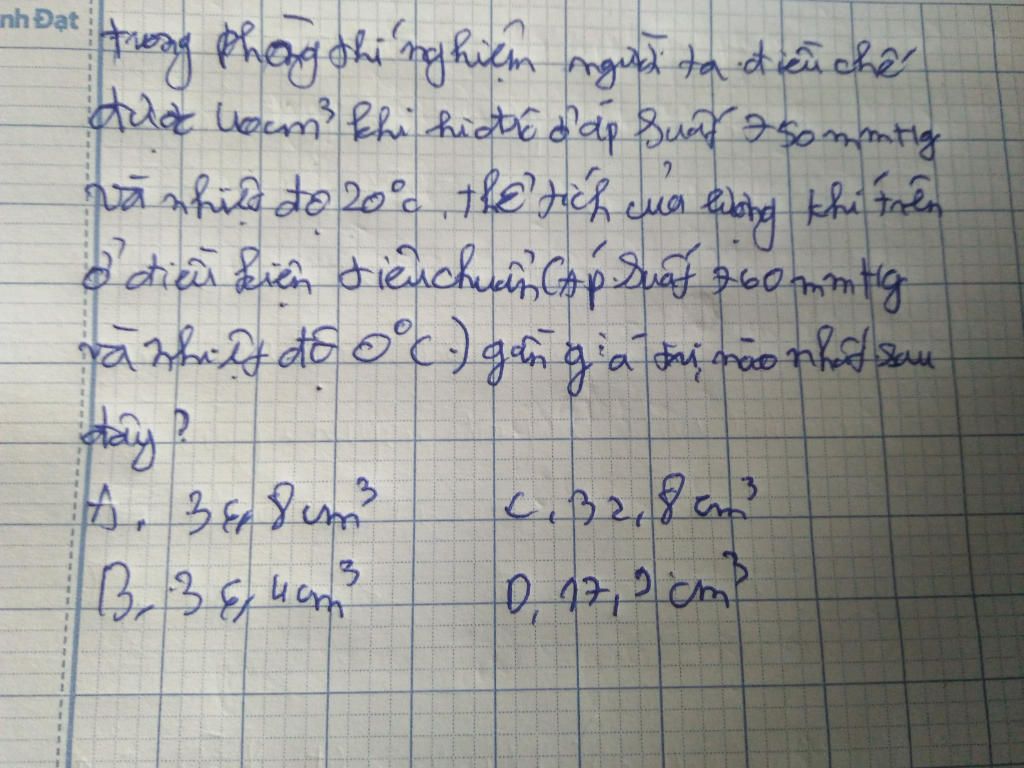 nh Đạt
trong phòng thí nghiệm người ta điều chế
được 40cm³ khí hiđrô ở áp suất 750mmHg
và nhiệt độ 20°C. thể tích của lượng khí trên
ở điều kiện tiêu chuẩn (áp suất 760mmHg
và nhiệt độ 0°C.) gần giá trị nào nhất sau
đây?
A. 36,8cm³ C. 32,8cm³
B. 36,4cm³ D. 17,9cm³